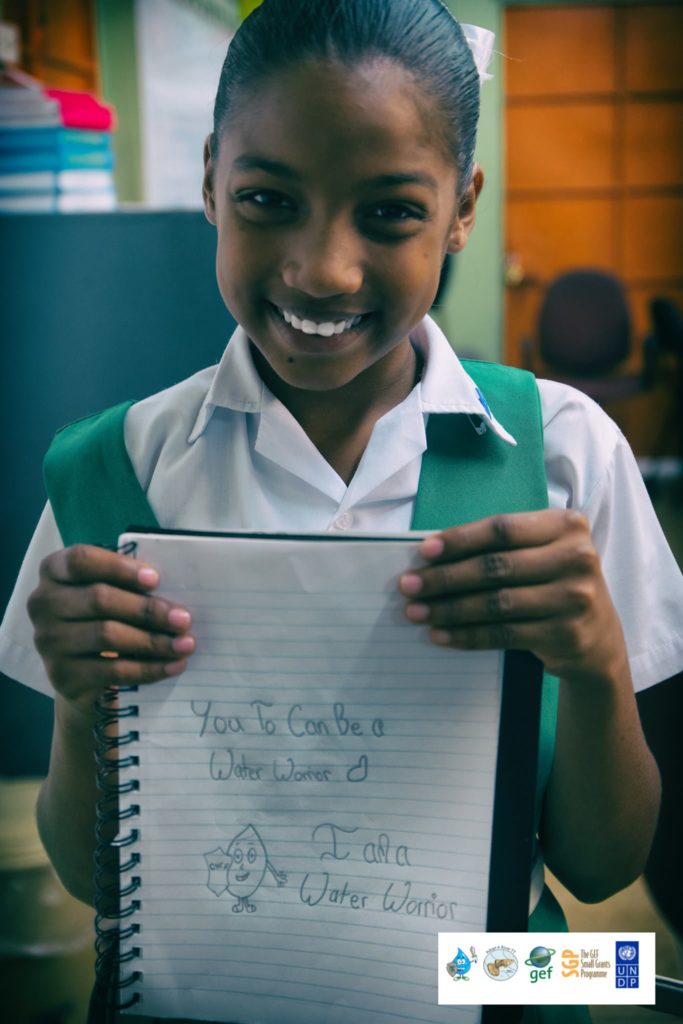 You To Can Be a
Water Worrior
I am a
Water Worrior
gef
SGP
The GEF
Small Grants
Programme
U N
D P